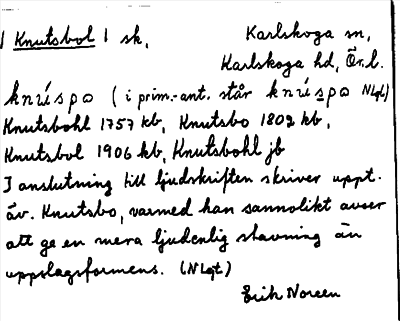 Knutsbol sk,
Karlskoga sn,
Karlskoga hd, Ör.l.
knúspo (i prim.-ant. står knúspo NLgt)
Knutsbohl 1757 kb, Knutsbo 1802 kb,
Knutsbol 1906 kb, Knutsbohl jb
I anslutning till ljudskriften skriver uppt.
äv. Knutsbo, varmed han sannolikt avser
att ge en mera ljudenlig stavning än
uppslagsformens. (NLgt)
Erik Noreen